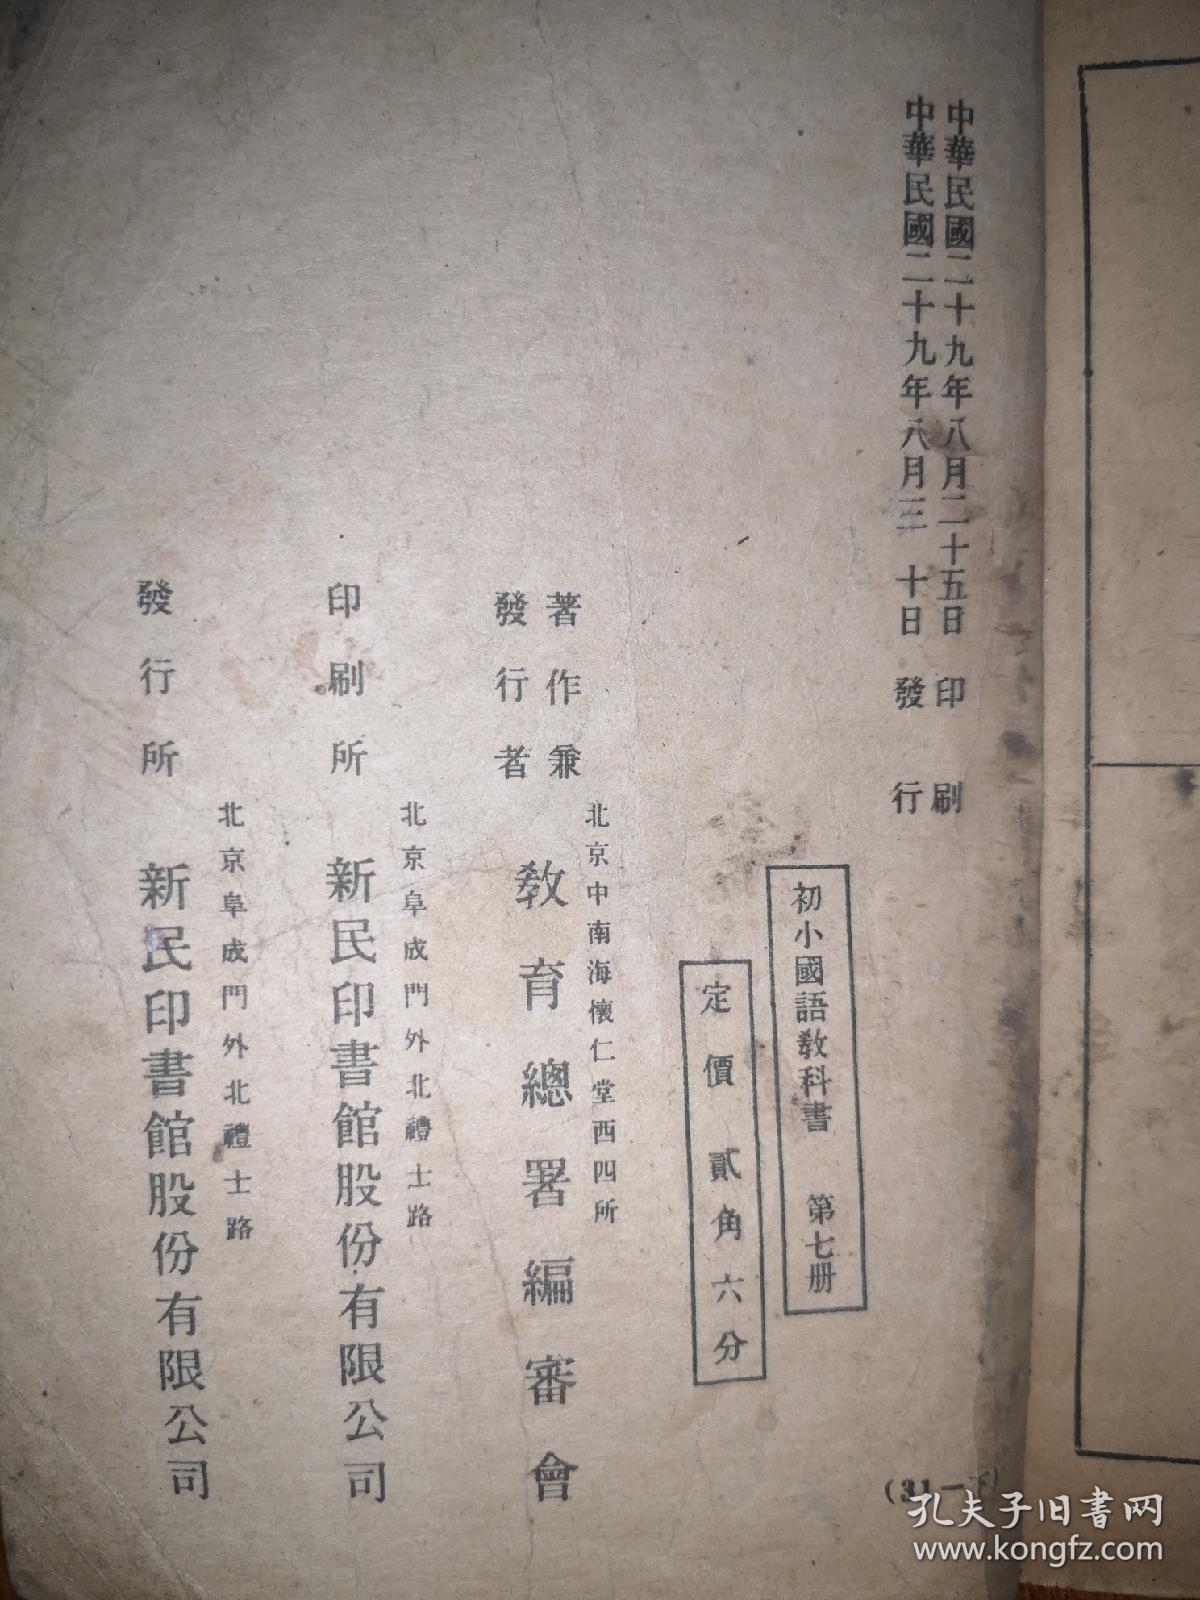 中華民國二十九年八月二十五日 印刷
中華民國二十九年八月三十日 發行
初小國語教科書 第七册
定價 貳角六分
著作兼
發行者
北京中南海懷仁堂西四所
教育總署編審會
印刷所
北京阜成門外北禮士路
新民印書館股份有限公司
發行所
北京阜成門外北禮士路
新民印書館股份有限公司
孔夫子旧书网
www.kongfz.com